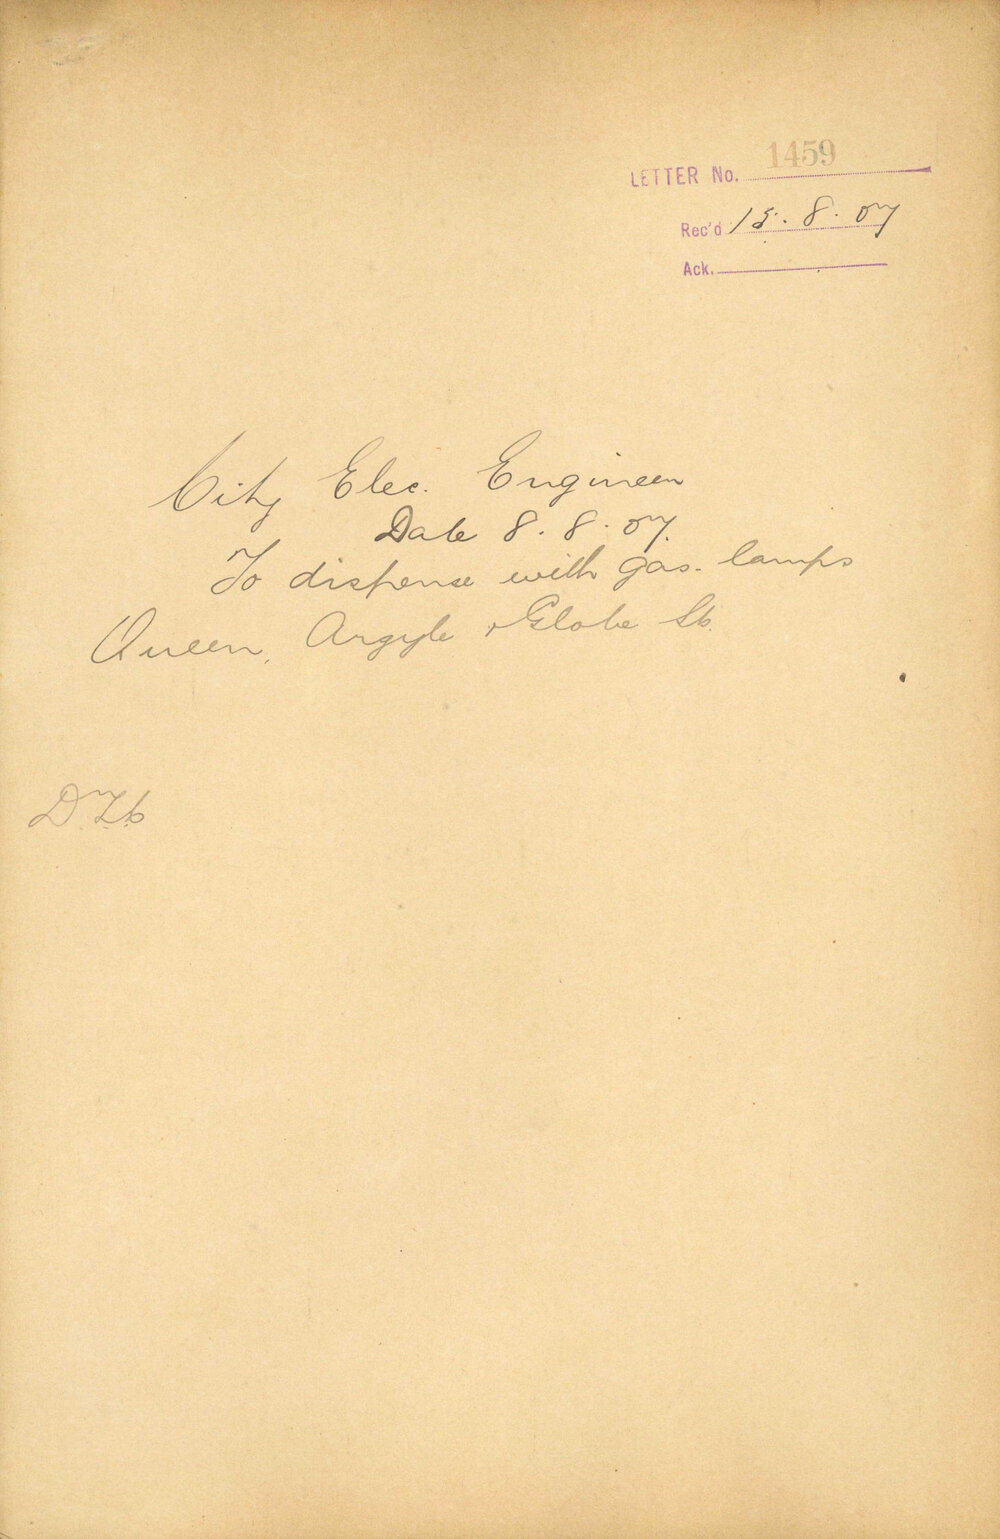 LETTER No. 1459
Rec'd 15.8.07
Ack.
City Elec. Engineer
Date 8.8.07.
To dispense with gas. lamps
Queen, Argyle & Globe Sts.